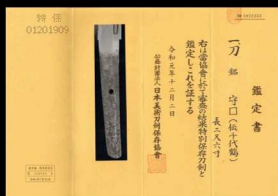 鑑定書
一刀 銘 守□(伝千代鶴)
長二尺六寸
右は當協會に於て審査の結果特別保存刀剣と
鑑定しこれを証する
令和元年十二月二日
公益財団法人日本美術刀剣保存協会
特保
01201909